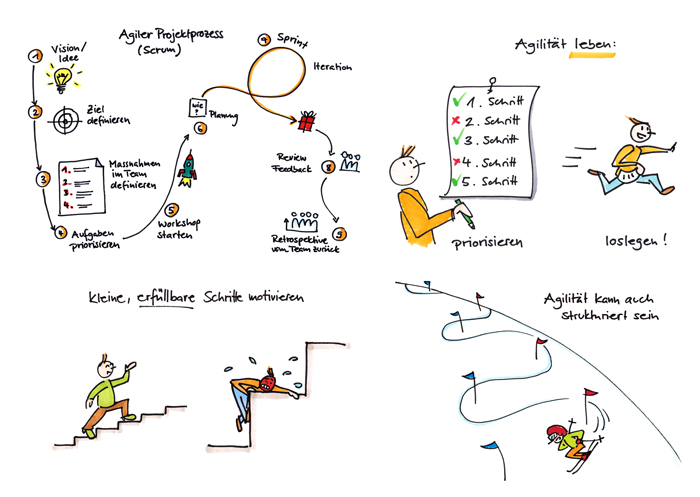 Agiler Projektprozess
(Scrum)
1
Vision/
Idee
2
Ziel
definieren
3
1.
2.
3.
4.
Massnahmen
im Team
definieren
4
Aufgaben
priorisieren
5
Workshop
starten
wie
?
Planung
6
Sprint
Iteration
Review
Feedback
8
Retrospektive
vom Team zurück
9
Agilität leben:
✓ 1. Schritt
x 2. Schritt
✓ 3. Schritt
x 4. Schritt
✓ 5. Schritt
priorisieren
loslegen!
kleine, erfüllbare Schritte motivieren
Agilität kann auch
strukturiert sein